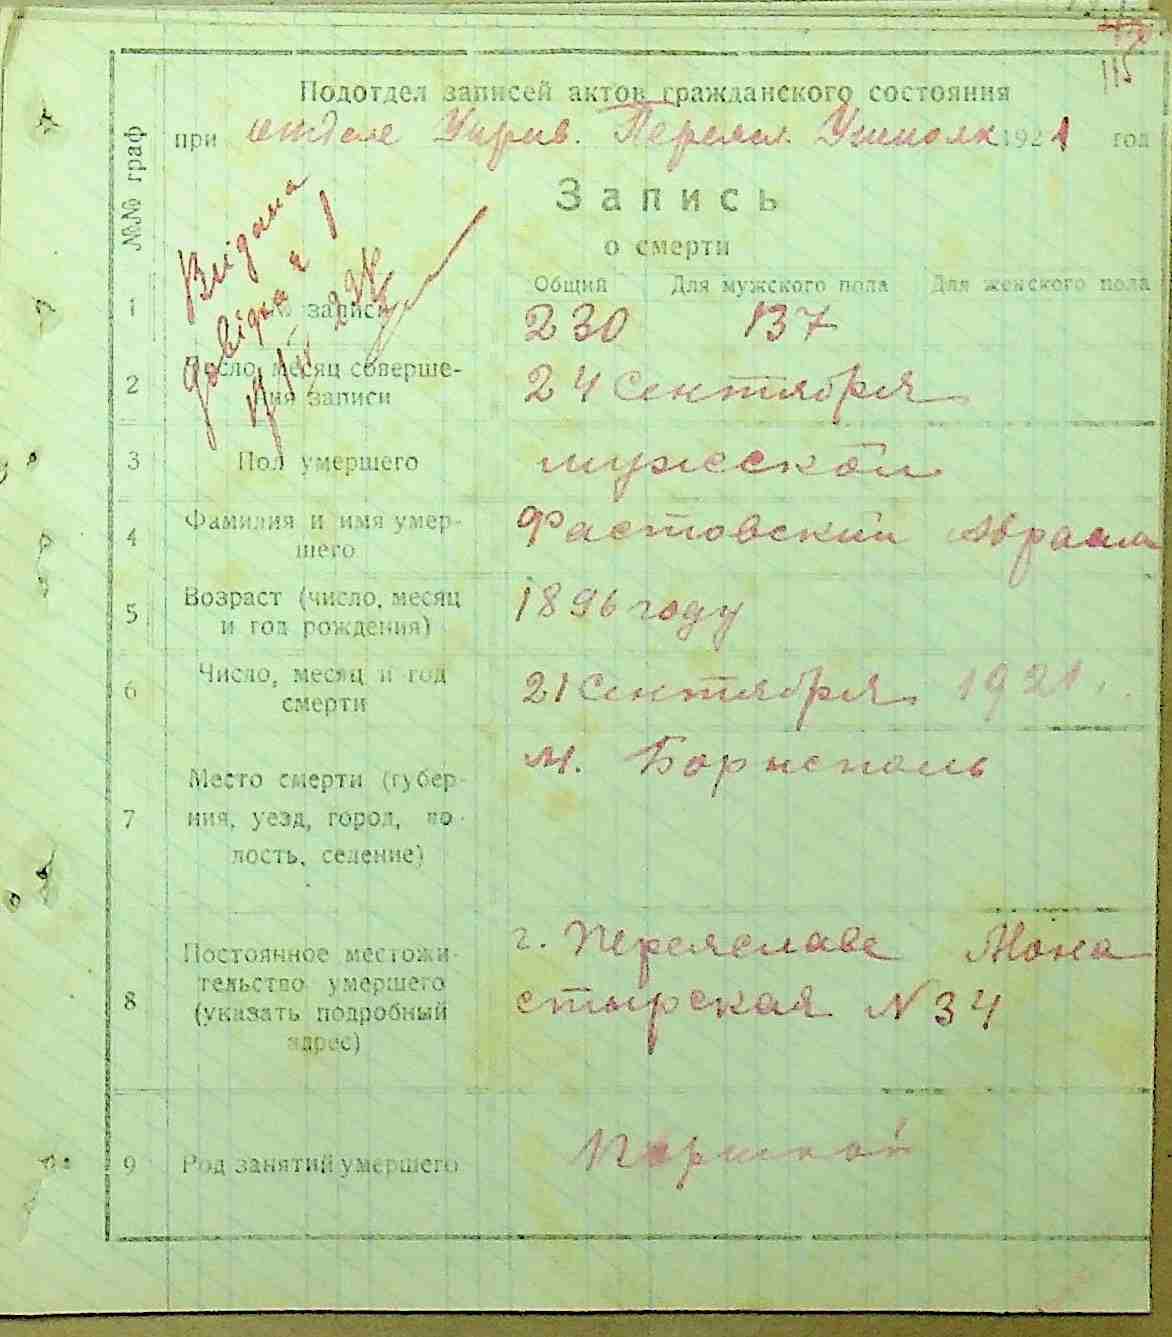 115
Подотдел записей актов гражданского состояния
при отделе Управ. Переясл. 1921 год
№№ граф
Запись
о смерти
Видана
довідка
Общий Для мужского пола Для женского пола
1 № записи 230 137
2 Число, месяц соверше-
ния записи 24 Сентября
3 Пол умершего мужской
4 Фамилия и имя умер-
шего Фастовский Авраам
5 Возраст (число, месяц
и год рождения) 1896 году
6 Число, месяц и год
смерти 21 Сентября 1921.
7 Место смерти (губер-
ния, уезд, город, во-
лость, селение) м. Борисполь
8 Постоянное местожи-
тельство умершего
(указать подробный
адрес) г. Переяславе Мона
стырская N 34
9 Род занятий умершего Портной